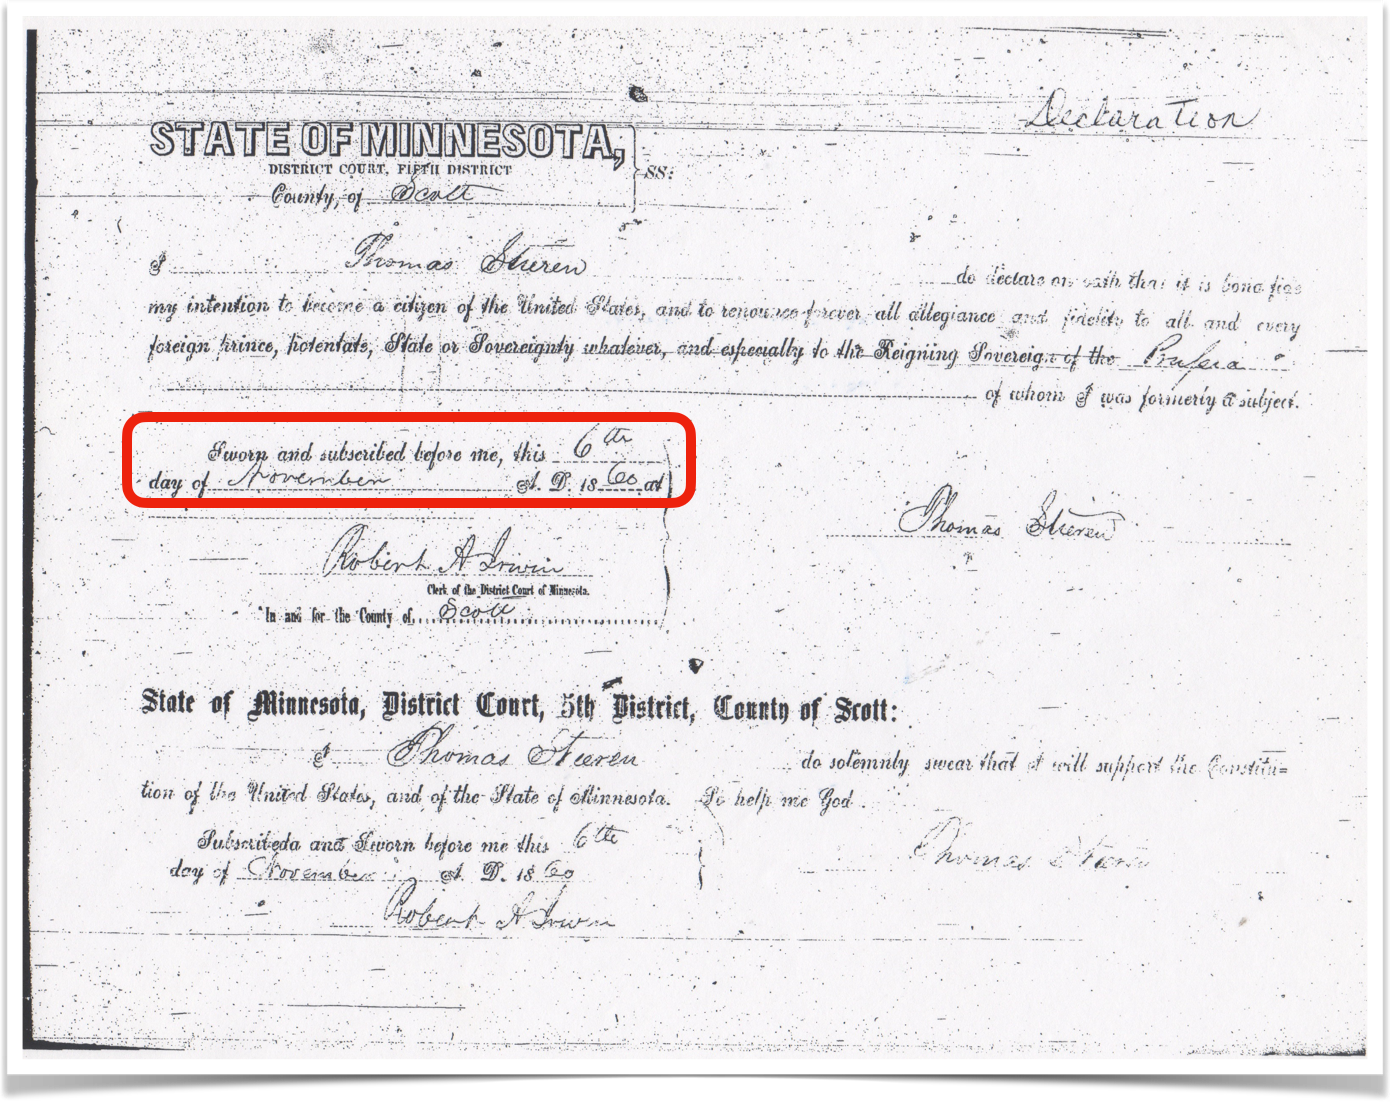 Declaration
STATE OF MINNESOTA,
DISTRICT COURT, FIFTH DISTRICT
SS:
County, of Scott
I Thomas Stieren do declare on oath that it is bona fide
my intention to become a citizen of the United States, and to renounce forever all allegiance and fidelity to all and every
foreign prince, potentate, State or Sovereignty whatever, and especially to the Reigning Sovereign of the Prussia
of whom I was formerly a subject.
Sworn and subscribed before me, this 6th
day of November A. D. 18 60 at
Thomas Stieren
Robert A Irwin
Clerk of the District Court of Minnesota.
In and for the County of Scott
State of Minnesota, District Court, 5th District, County of Scott:
I Thomas Stieren do solemnly swear that I will support the Constitu=
tion of the United States, and of the State of Minnesota. So help me God.
Subscribed and Sworn before me this 6th
day of November A. D. 18 60
Thomas Stieren
Robert A Irwin